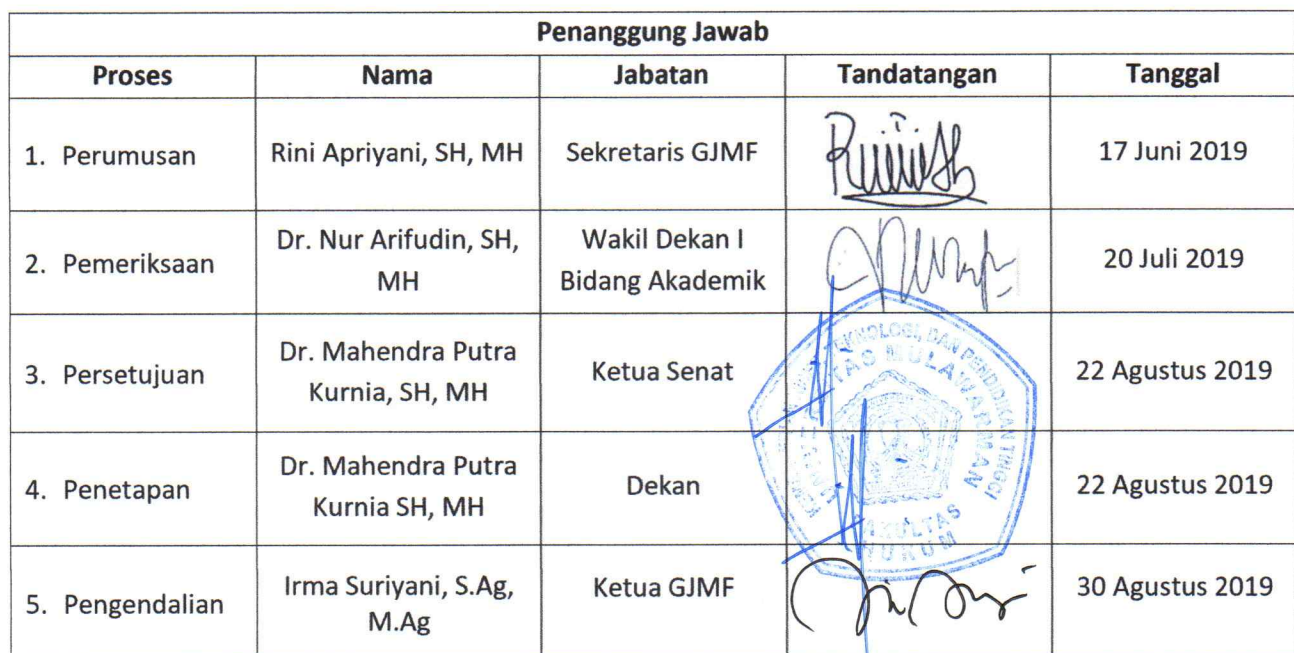 Penanggung Jawab
Proses Nama Jabatan Tandatangan Tanggal
1. Perumusan Rini Apriyani, SH, MH Sekretaris GJMF 17 Juni 2019
2. Pemeriksaan Dr. Nur Arifudin, SH, MH Wakil Dekan I Bidang Akademik 20 Juli 2019
3. Persetujuan Dr. Mahendra Putra Kurnia, SH, MH Ketua Senat 22 Agustus 2019
4. Penetapan Dr. Mahendra Putra Kurnia SH, MH Dekan 22 Agustus 2019
5. Pengendalian Irma Suriyani, S.Ag, M.Ag Ketua GJMF 30 Agustus 2019
TEKNOLOGI, DAN PENDIDIKAN TINGGI
MULAWARMAN
FAKULTAS
HUKUM